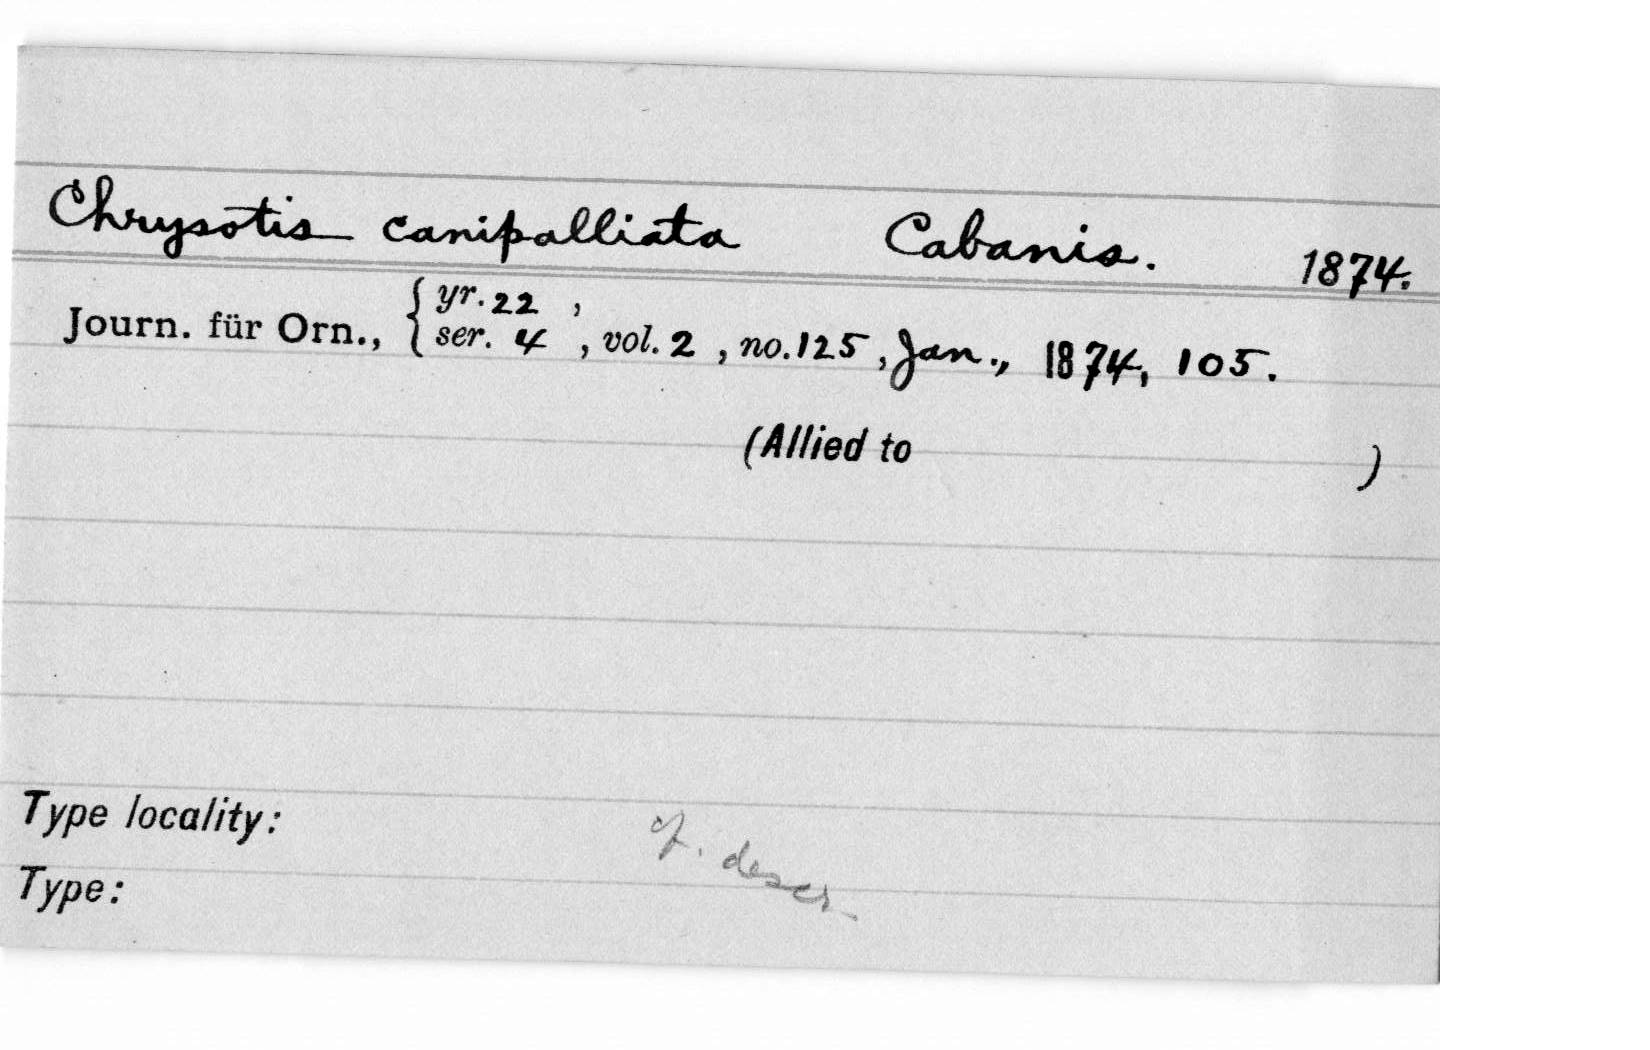 Chrysotis canipalliata Cabanis. 1874.
Journ. für Orn., { yr. 22 ,
ser. 4 , vol. 2 , no. 125 , Jan., 1874, 105.
(Allied to )
Type locality:
cf. descr
Type: